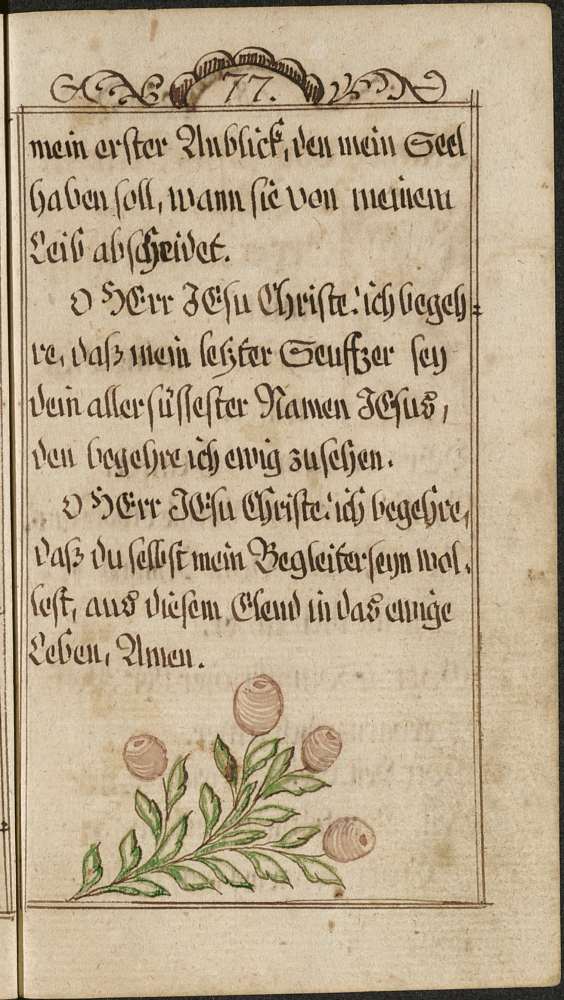 77.
mein erster Anblick, den mein Seel
haben soll, wann sie von meinem
Leib abscheidet.
O HErr JEsu Christe! ich begeh⸗
re, daß mein letzter Seuffzer sey
dein allersüssester Namen JEsus,
den begehre ich ewig zusehen.
O HErr JEsu Christe! ich begehre,
daß du selbst mein Begleiter seyn wol⸗
lest, aus diesem Elend in das ewige
Leben, Amen.